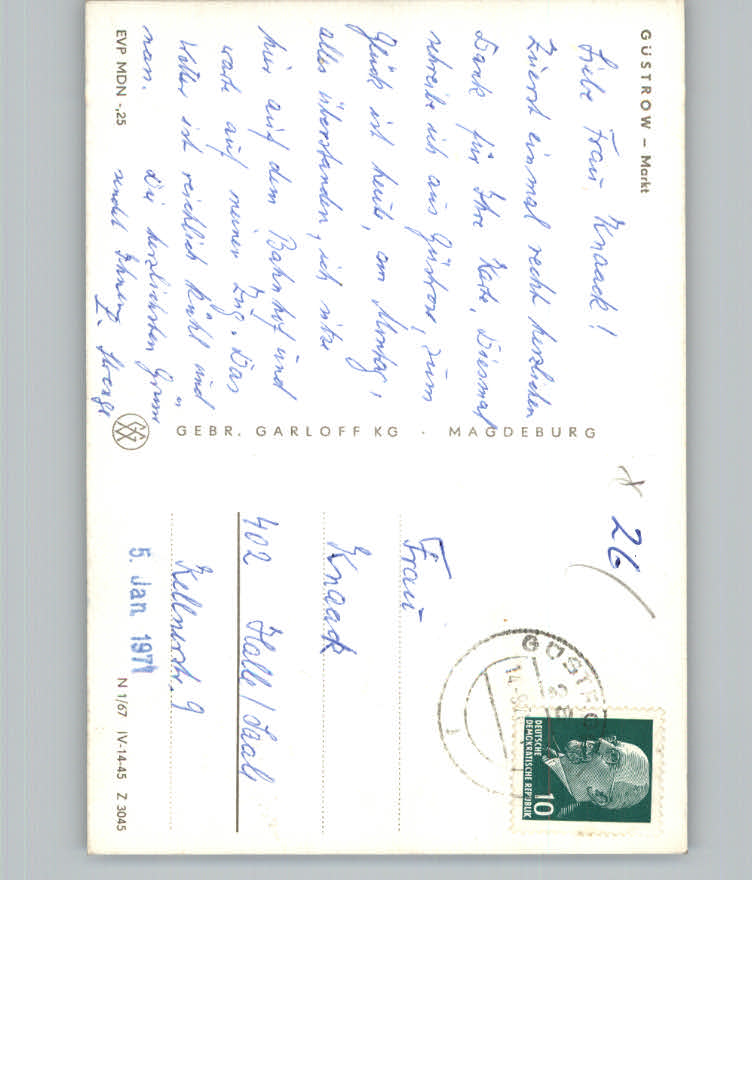 GÜSTROW – Markt
Liebe Frau Knaack!
Zuerst einmal recht herzlichen
Dank für Ihre Karte. Diesmal
schreibe ich aus Güstrow, zum
Glück ist heute, am Montag,
alles überstanden, ich sitze
hier auf dem Bahnhof und
warte auf meinen Zug. Das
Wetter ist reichlich kühl und
nass.
Die herzlichsten Grüsse
sendet Ihnen
EVP MDN -,25
GEBR. GARLOFF KG · MAGDEBURG
26
GÜSTRO
DEUTSCHE
DEMOKRATISCHE REPUBLIK
10
Frau
Knaack
402 Halle/Saale
Kellnerstr. 9
5. Jan. 1971
N 1/67 IV-14-45 Z 3045